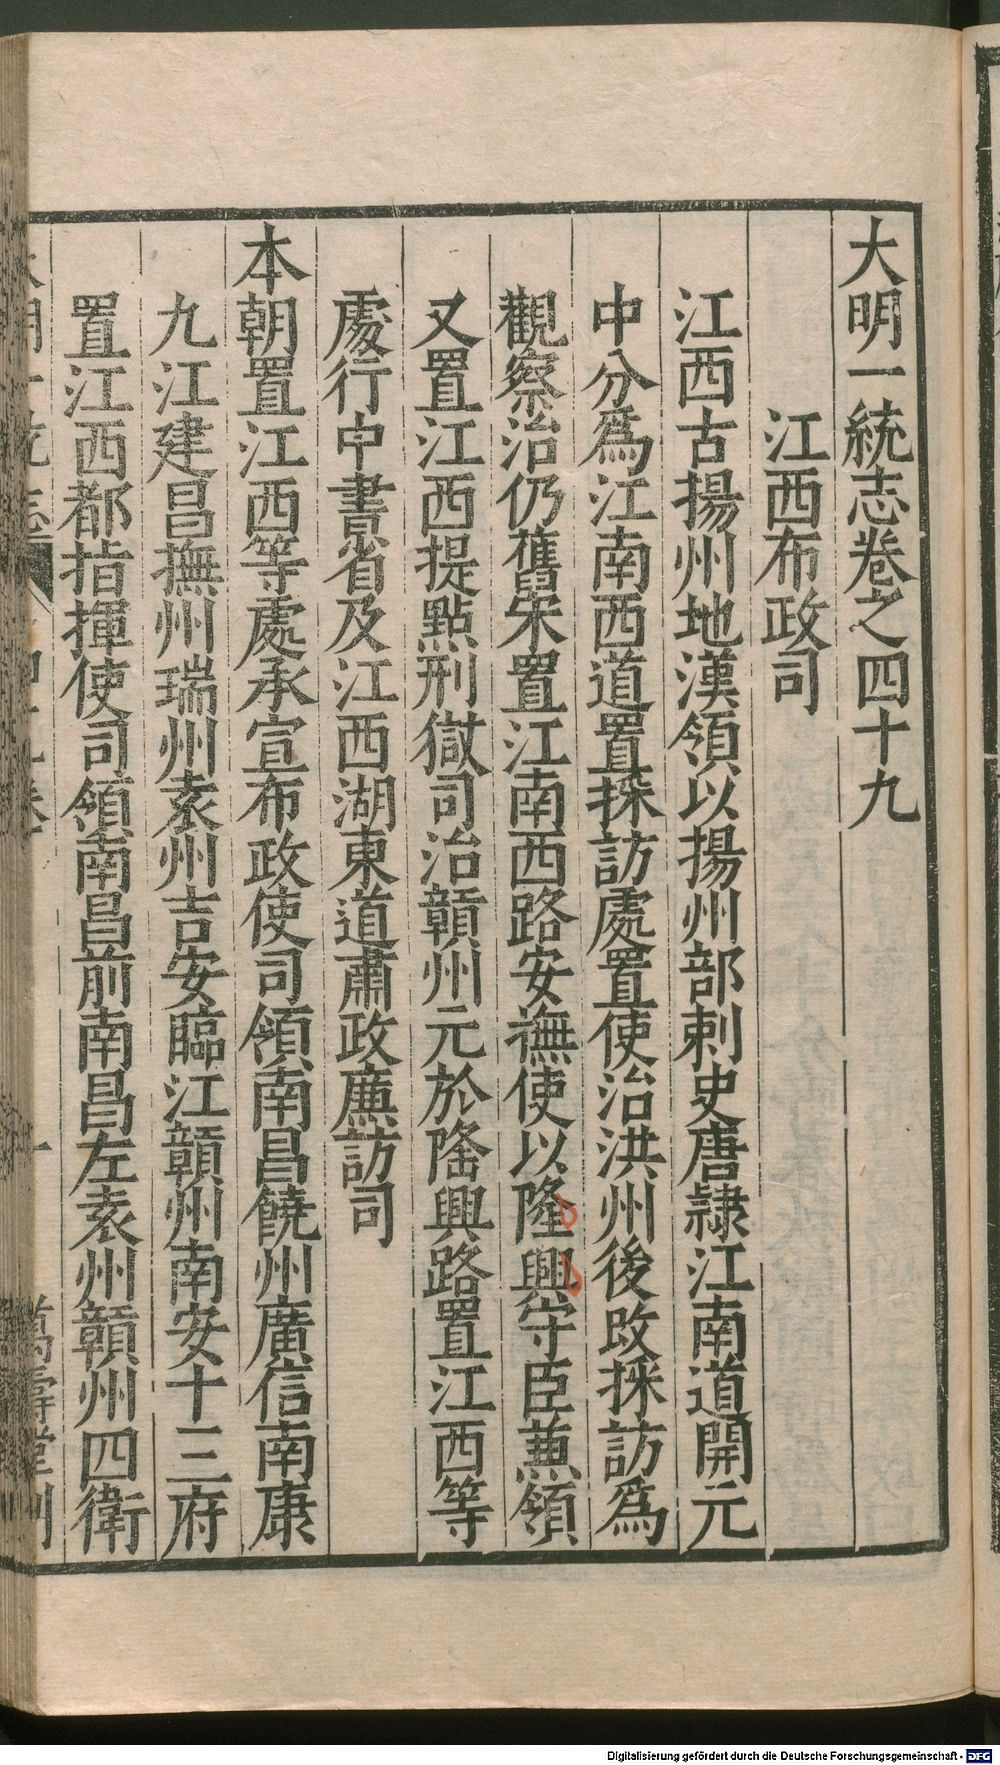 大明一統志卷之四十九
江西布政司
江西古揚州地漢領以揚州部刺史唐隸江南道開元
中分爲江南西道置採訪處置使治洪州後改採訪爲
觀察治仍舊宋置江南西路安撫使以隆興守臣兼領
又置江西提點刑獄司治贑州元於隆興路置江西等
處行中書省及江西湖東道肅政廉訪司
本朝置江西等處承宣布政使司領南昌饒州廣信南康
九江建昌撫州瑞州袁州吉安臨江贑州南安十三府
置江西都指揮使司領南昌前南昌左袁州贑州四衛
萬壽堂刊
Digitalisierung gefördert durch die Deutsche Forschungsgemeinschaft - DFG